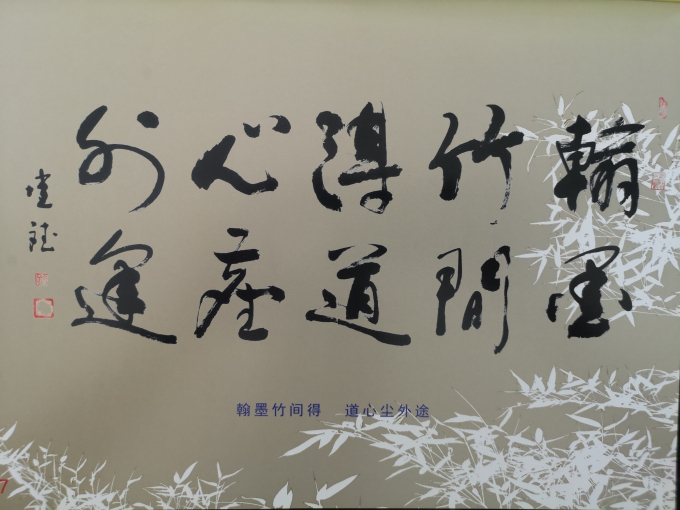 翰墨
竹間
得道
心塵
外途
翰墨竹间得 道心尘外途
7